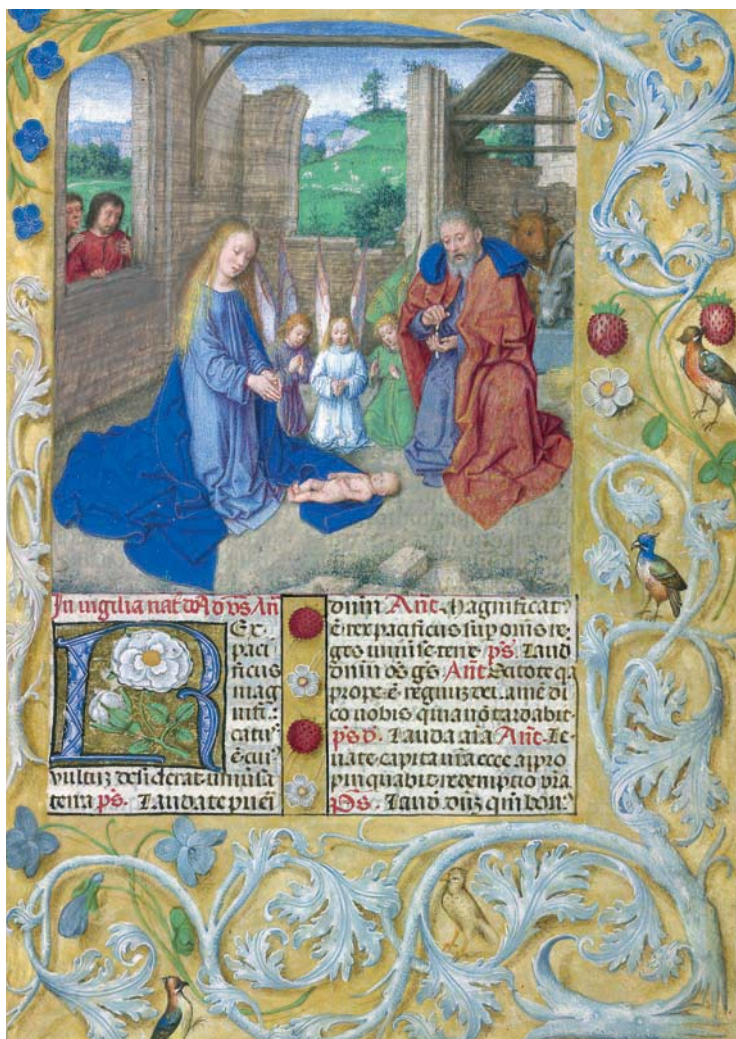 In uigilia nat̄ ad v̄s An̄
Rex
paci
ficus
mag
nifi
catꝰ
ē cuiꝰ
vultū desiderat uniūsa
terra ps. Laudate pueri
dnm̄ Anē. Magnificatꝰ
ē rex pacificus sup om̄is re
ges uniūse terre ps. Laud
dnm̄ oš gs̄ Anē Scitote qa
prope ē regnū dei. amē di
co uobis quia nō tardabit
ps d. Lauda aīa Anē. Le
uate capita vr̄a ecce appro
pinquabit redemptio vr̄a
Ps. Laud dnm̄ qm̄ bonꝰ